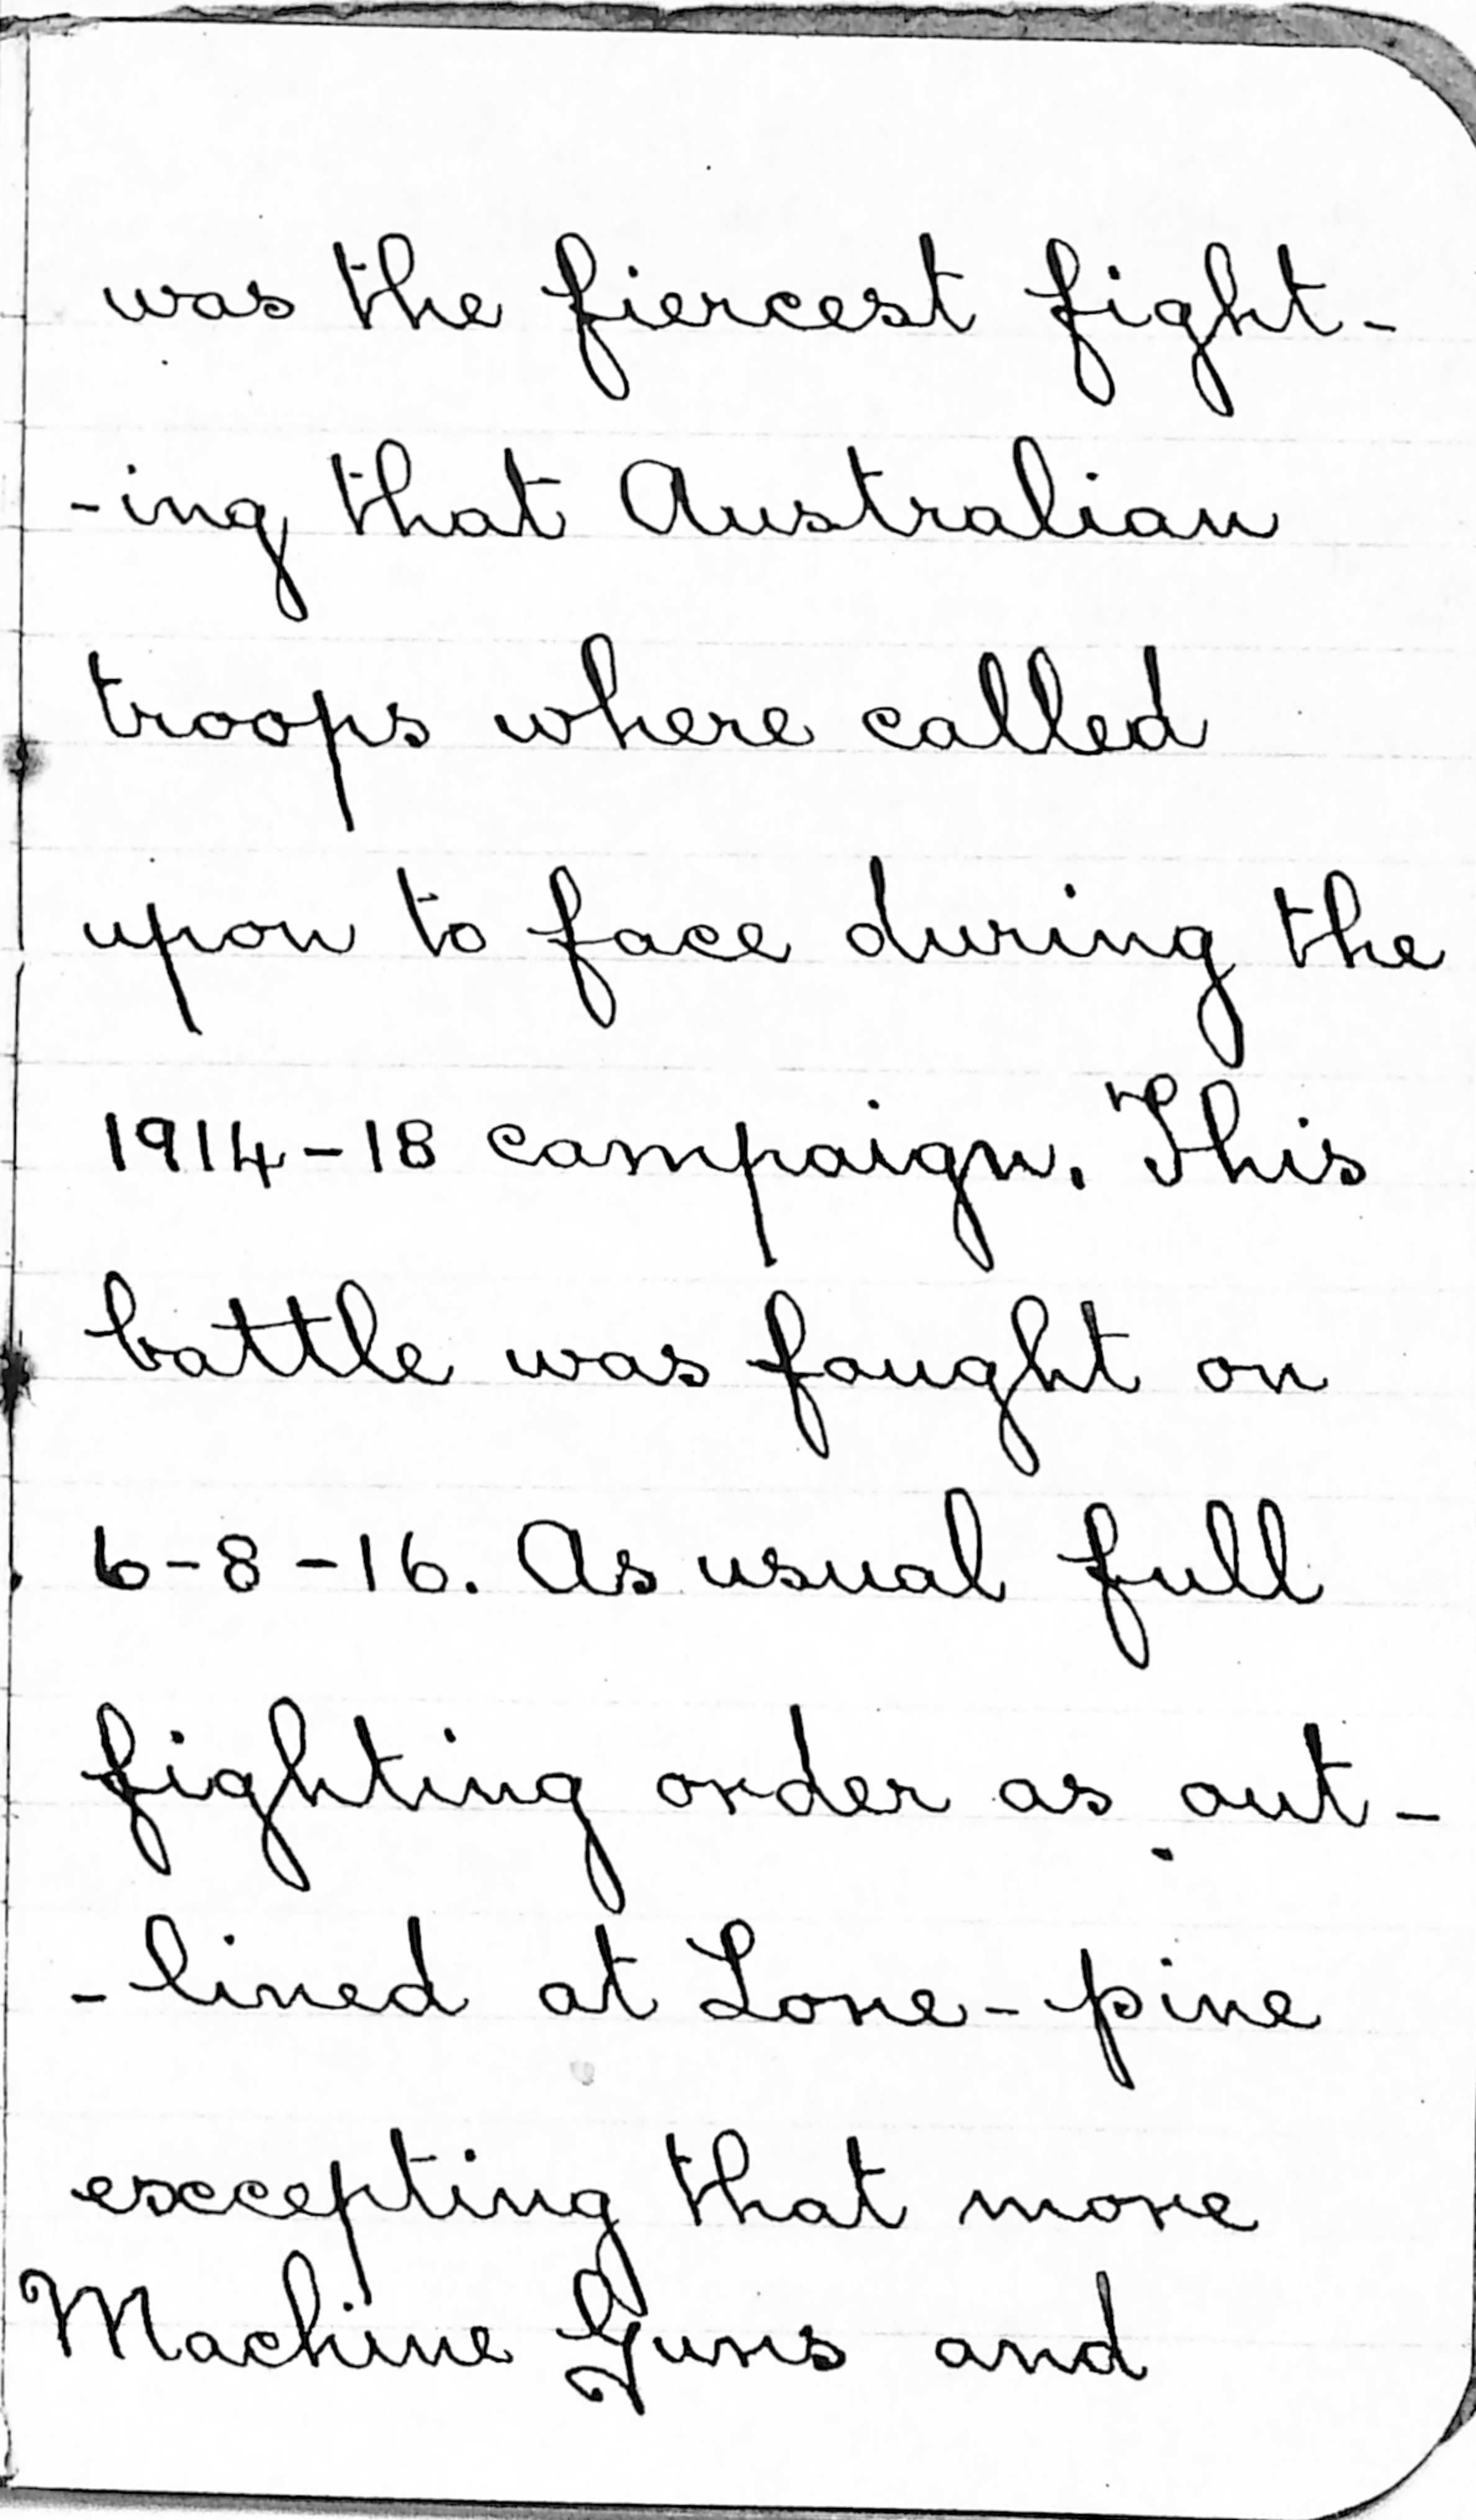 was the fiercest fight-
-ing that Australian
troops where called
upon to face during the
1914-18 campaign. This
battle was fought on
6-8-16. As usual full
fighting order as out-
-lined at Lone-pine
excepting that more
Machine Guns and